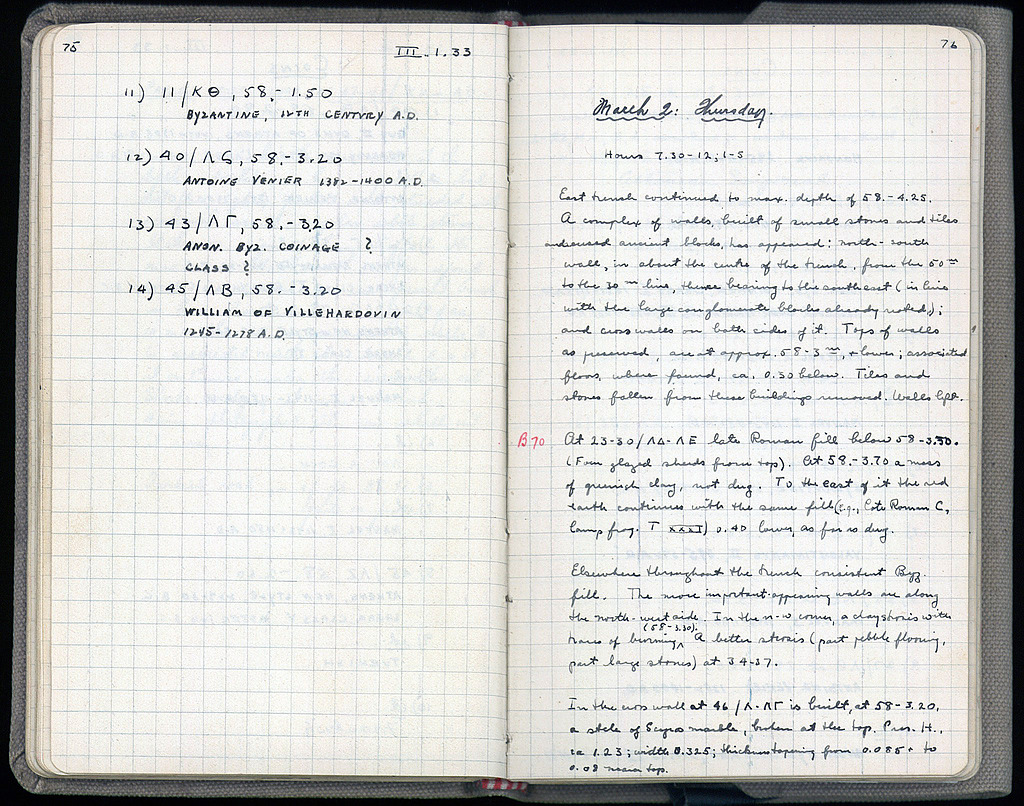 75
III.1.33
11) 11/ΚΘ, 58,-1.50
BYZANTINE, 12TH CENTURY A.D.
12) 40/ΛS, 58,-3.20
ANTOINE VENIER 1382-1400 A.D.
13) 43/ΛΓ, 58,-3.20
ANON. BYZ. COINAGE ?
CLASS ?
14) 45/ΛΒ, 58.-3.20
WILLIAM OF VILLEHARDOVIN
1245-1278 A.D.
76
March 2: Thursday.
Hours 7.30-12; 1-5
East trench continued to max. depth of 58.-4.25.
A complex of walls, built of small stones and tiles
and reused ancient blocks, has appeared: north-south
wall, in about the centre of the trench, from the 50 m
to the 30 m line, thence bearing to the southeast (in line
with the large conglomerate blocks already noted);
and cross walls on both sides of it. Tops of walls
as preserved, are at approx. 58-3 m, + lower; associated
floors, where found, ca. 0.50 below. Tiles and
stones fallen from these buildings removed. Walls left.
B 70
At 23-30/ΛΔ-ΛΕ late Roman fill below 58-3.50.
(Few glazed sherds from top). At 58.-3.70 a mass
of greenish clay, not dug. To the east of it the red
earth continues with the same fill (E.g., Late Roman C,
lamp frag. T XXXI) 0.40 lower, as far as dug.
Elsewhere throughout the trench consistent Byz.
fill. The more important-appearing walls are along
the north-west side. In the n-w corner, a clay strosis with
traces of burning (58-3.30). A better strosis (part pebble flooring,
part large stones) at 34-37.
In the cross wall at 46/Λ-ΛΓ is built, at 58-3.20,
a stele of Scyros marble, broken at the top. Pres. H.,
ca 1.23; width 0.325; thickness tapering from 0.085+ to
0.08 near top.